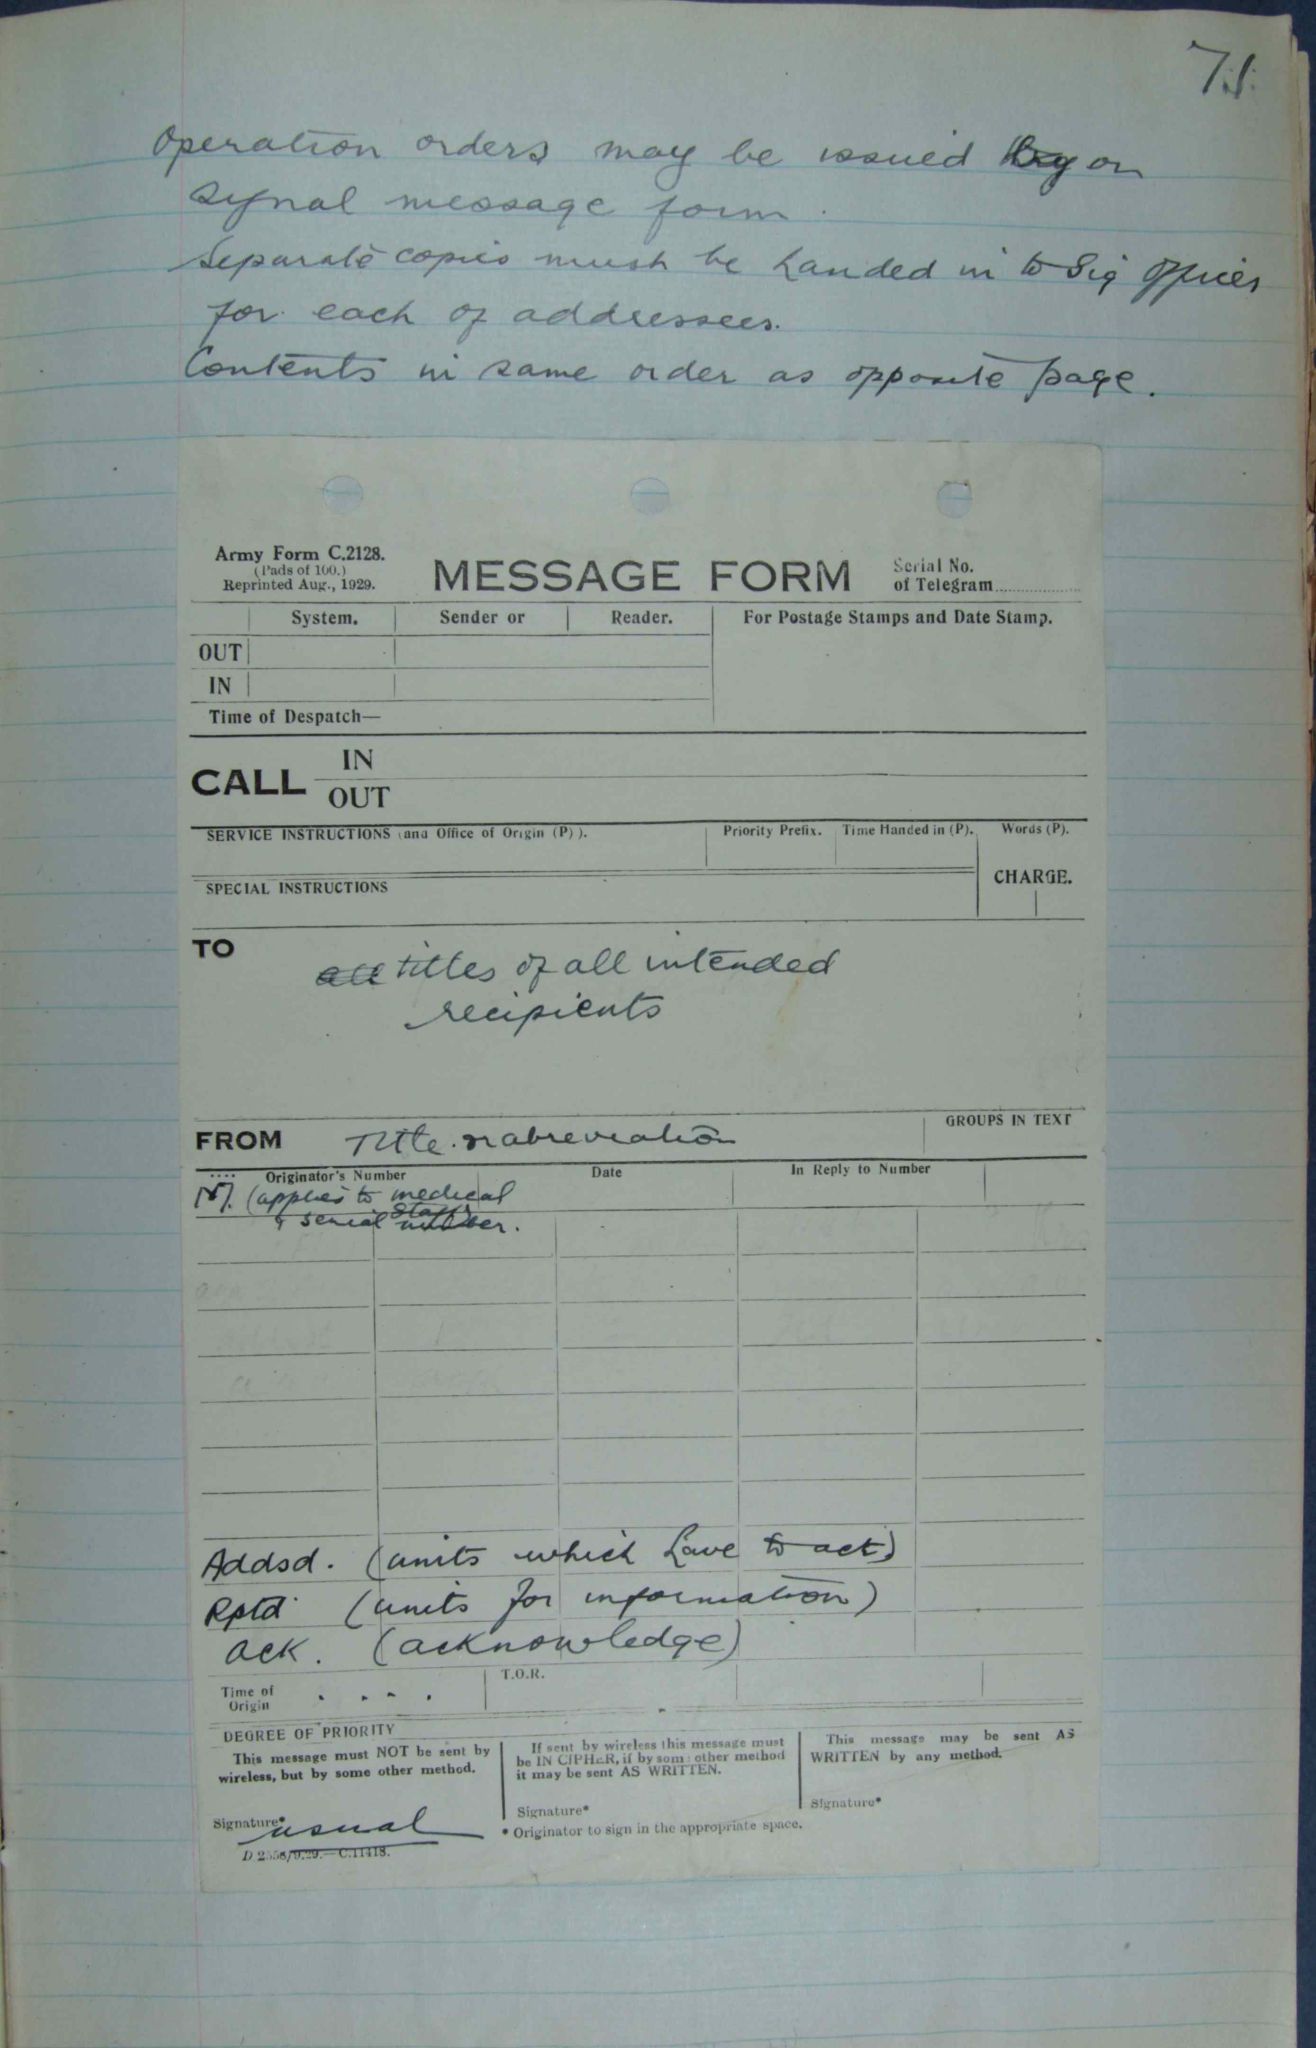 71.
Operation orders may be issued by on
signal message form.
Separate copies must be handed in to Sig Officer
for each of addressees.
Contents in same order as opposite page.
Army Form C.2128.
(Pads of 100.)
Reprinted Aug., 1929.
MESSAGE FORM
Serial No.
of Telegram
System. Sender or Reader. For Postage Stamps and Date Stamp.
OUT
IN
Time of Despatch—
CALL IN
OUT
SERVICE INSTRUCTIONS (and Office of Origin (P)). Priority Prefix. Time Handed in (P). Words (P).
SPECIAL INSTRUCTIONS
CHARGE.
TO
all titles of all intended
recipients
FROM Title or abreviation GROUPS IN TEXT
Originator's Number Date In Reply to Number
M. (applies to medical
staff
& serial number.
Addsd. (units which have to act)
Rptd (units for information)
ack. (acknowledge)
Time of
Origin
T.O.R.
DEGREE OF PRIORITY
This message must NOT be sent by
wireless, but by some other method.
Signature* usual
If sent by wireless this message must
be IN CIPHER, if by some other method
it may be sent AS WRITTEN.
Signature*
This message may be sent AS
WRITTEN by any method.
Signature*
* Originator to sign in the appropriate space.
D 2558/9.29.—C.11418.